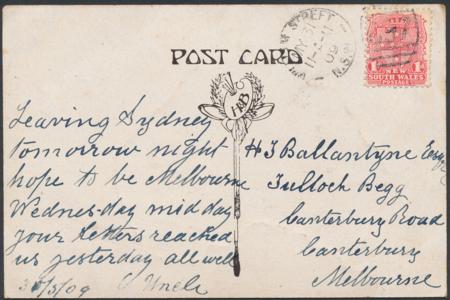 POST CARD
WILLIAM STREET
MY 31
11-11
09
N.S.W
NEW
SOUTH WALES
POSTAGE
1D
HB
Leaving Sydney
tomorrow night
hope to be Melbourne
Wednesday mid day
your letters reached
us yesterday all well
30/5/09 Uncle
H J Ballantyne Esq
Tulloch Begg
Canterbury Road
Canterbury
Melbourne